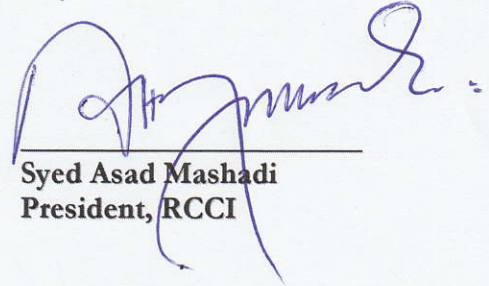 Syed Asad Mashadi
President, RCCI